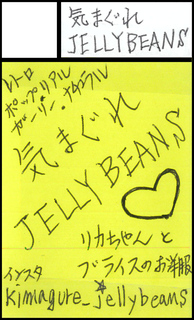 気まぐれ
JELLYBEANS
レトロ
ポップ、リアル
ガーリー、ナチュラル
気まぐれ
JELLY BEANS
リカちゃんと
ブライスのお洋服
インスタ
kimagure_jellybeans